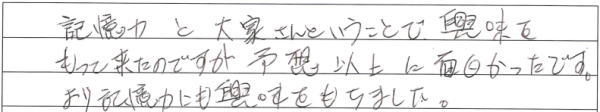 記憶力と大家さんということで興味を
もって来たのですが予想以上に面白かったです。
より記憶力にも興味をもちました。